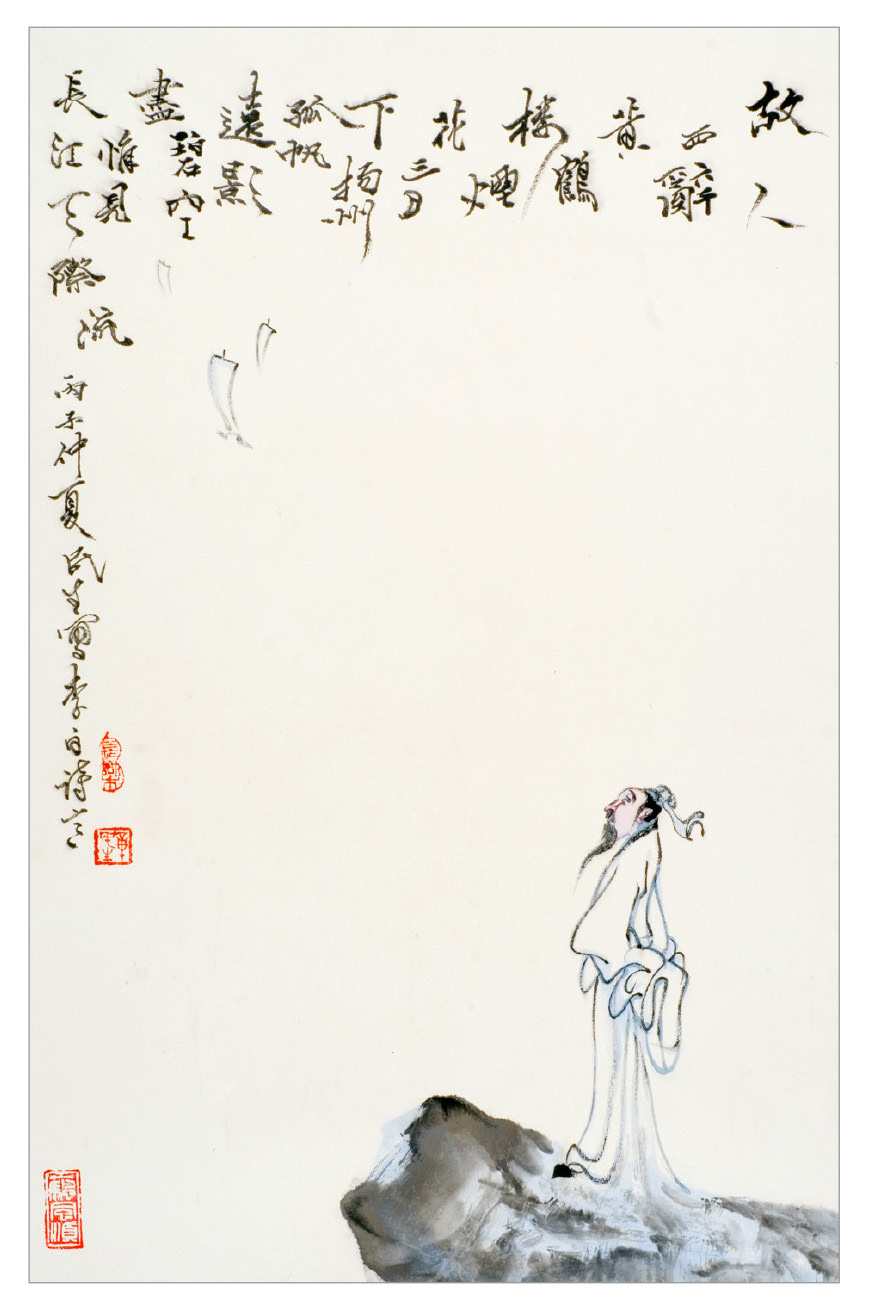 故人
西辭
黄
鶴
楼
煙
花
三月
下
揚州
孤帆
遠影
碧空
盡
惟見
長江天際流
丙子仲夏民生寫李白詩意